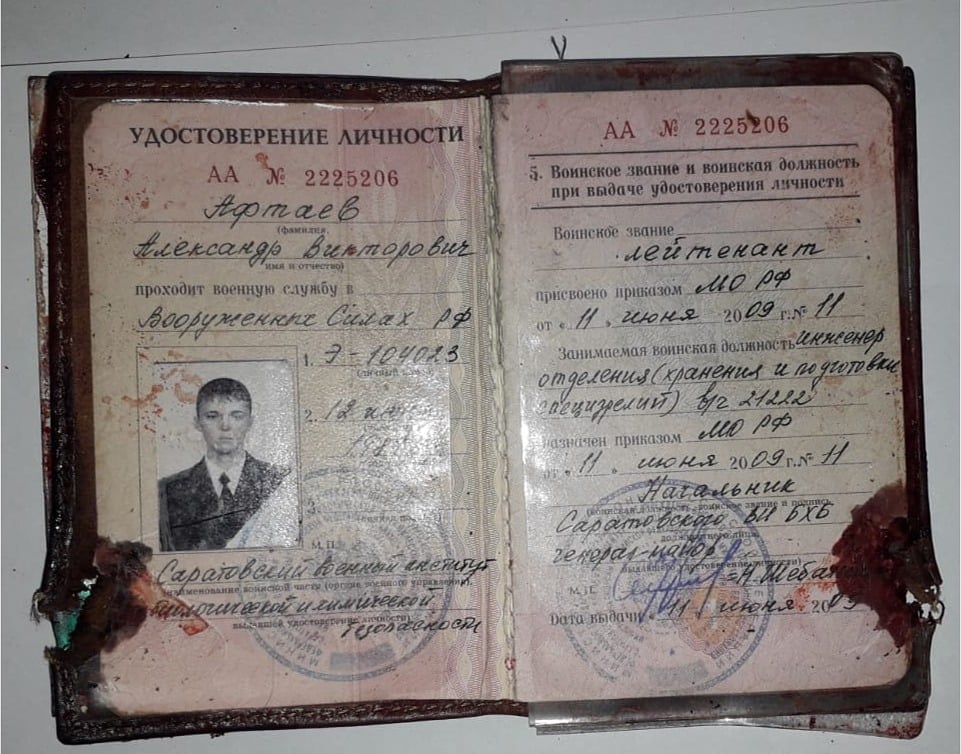 УДОСТОВЕРЕНИЕ ЛИЧНОСТИ
АА № 2225206
Афтаев
(фамилия,
Александр Викторович
имя и отчество)
проходит военную службу в
Вооруженных Силах РФ
1. Э-104023
(личный номер)
2. 12
3.
М. П.
Саратовский военный институт
(наименование воинской части (органа военного управления),
биологической и химической
выдавшей удостоверение личности)
безопасности
АА № 2225206
5. Воинское звание и воинская должность
при выдаче удостоверения личности
Воинское звание
лейтенант
присвоено приказом МО РФ
от «11» июня 2009 г. № 11
Занимаемая воинская должность инженер
отделения (хранения и подготовки
специзделий) в/ч 21222
назначен приказом МО РФ
от «11» июня 2009 г. № 11
Начальник
(воинская должность, воинское звание и подпись
Саратовского ВИ БХБ
должностного лица,
генерал-майор
выдавшего удостоверение личности)
М. П.
Дата выдачи «11» июня 2009